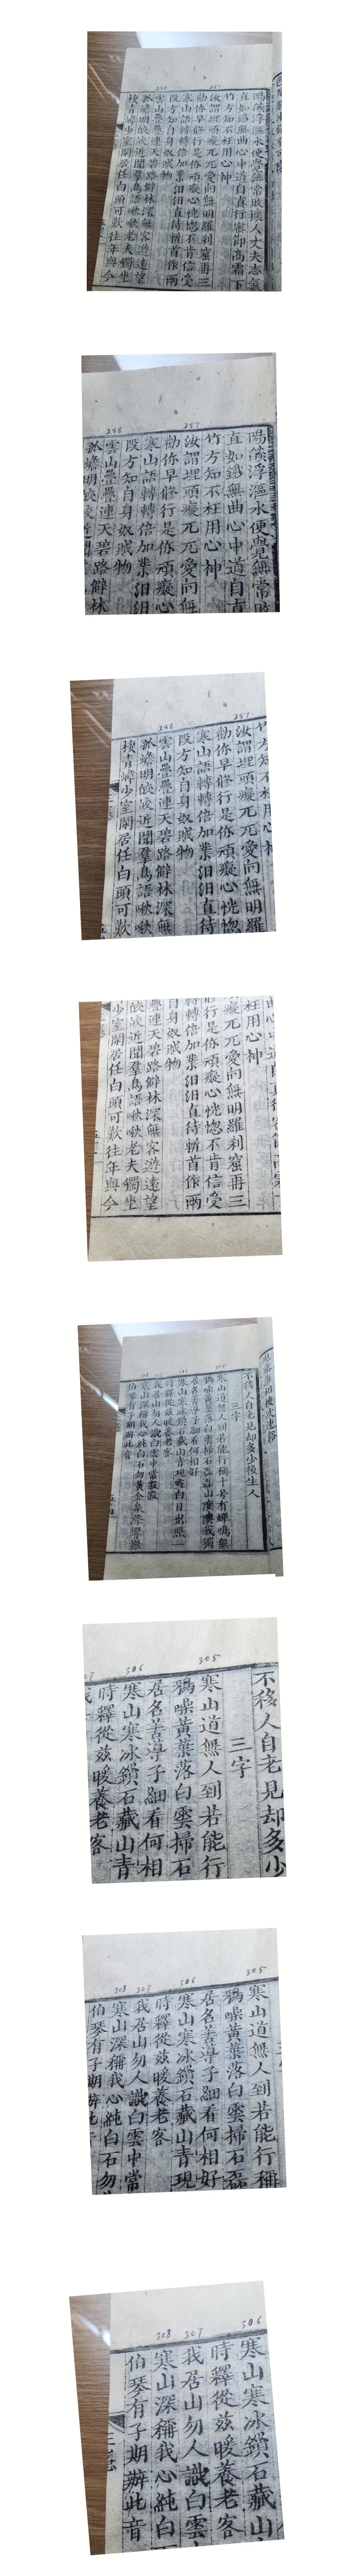 287
288
陽燄浮漚水便覺無常敗壞人丈夫志氣
直如鐵無曲心中道自直行密節高霜下
竹方知不枉用心神
汝謂埋頭癡兀兀愛向無明羅刹窟再三
勸你早修行是你頑癡心恍惚不肯信受
寒山語轉轉倍加業汨汨直待斬首作兩
段方知自身奴賊物
雲山疊疊連天碧路僻林深無客遊遠望
孤蟾明皎皎近聞羣鳥語啾啾老夫獨坐
棲青嶂少室閑居任白頭可歎往年與今
287
288
陽燄浮漚水便覺無常
直如鐵無曲心中道自直
竹方知不枉用心神
汝謂埋頭癡兀兀愛向無
勸你早修行是你頑癡心
寒山語轉轉倍加業汨汨
段方知自身奴賊物
雲山疊疊連天碧路僻林
孤蟾明皎皎近聞
287
288
竹方知不枉用心神
汝謂埋頭癡兀兀愛向無明羅
勸你早修行是你頑癡心恍惚
寒山語轉轉倍加業汨汨直待
段方知自身奴賊物
雲山疊疊連天碧路僻林深無
孤蟾明皎皎近聞羣鳥語啾啾
棲青嶂少室閑居任白頭可歎
枉用心神
癡兀兀愛向無明羅刹窟再三
行是你頑癡心恍惚不肯信受
轉轉倍加業汨汨直待斬首作兩
自身奴賊物
疊連天碧路僻林深無客遊遠望
皎皎近聞羣鳥語啾啾老夫獨坐
少室閑居任白頭可歎往年與今
305
306
307
308
不移人自老見却多少後生人
三字
寒山道無人到若能行稱十号有蟬鳴無
鴉噪黃葉落白雲掃石磊磊山隩隩我獨
居名善導子細看何相好
寒山寒冰鎖石藏山青現雪白日出照一
時釋從茲暖養老客
我居山勿人識白雲中常寂寂
寒山深稱我心純白石勿黃金泉聲響撫
伯琴有子期辨此音
305
306
07
不移人自老見却多少
三字
寒山道無人到若能行
鴉噪黃葉落白雲掃石
居名善導子細看何相
寒山寒冰鎖石藏山青
時釋從茲暖養老客
305
306
307
308
寒山道無人到若能行稱
鴉噪黃葉落白雲掃石磊
居名善導子細看何相好
寒山寒冰鎖石藏山青現
時釋從茲暖養老客
我居山勿人識白雲中常
寒山深稱我心純白石勿
伯琴有子期辨此
306
307
308
寒山寒冰鎖石藏山
時釋從茲暖養老客
我居山勿人識白雲
寒山深稱我心純白
伯琴有子期辨此音